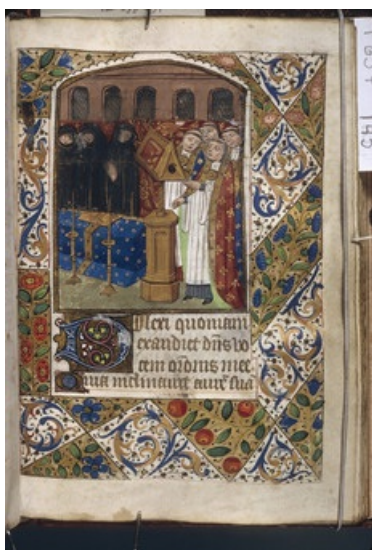 Dilexi quoniam
exaudiet dn̄s vo
cem or̄onis mee
Quia inclinauit aurē suā